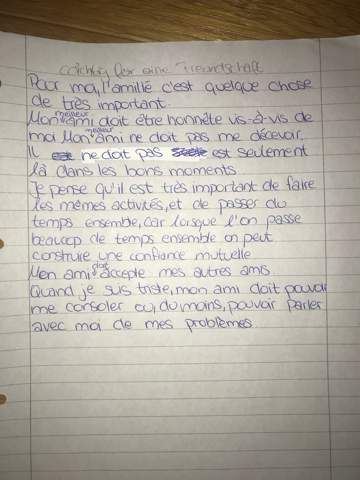 wichtig für eine Freundschaft
Pour moi, l'amitié c'est quelque chose
de très important.
Mon meilleur ami doit être honnête vis-à-vis de
moi. Mon meilleur ami ne doit pas me décevoir.
Il ne doit pas est seulement
là dans les bons moments
Je pense qu'il est très important de faire
les mêmes activités, et de passer du
temps ensemble, car lorsque l'on passe
beaucop de temps ensemble on peut
construire une confiance mutuelle
Mon ami doit accepte mes autres amis
Quand je sus triste, mon ami doit pouvoir
me consoler ou, du moins, pouvoir parler
avec moi de mes problèmes